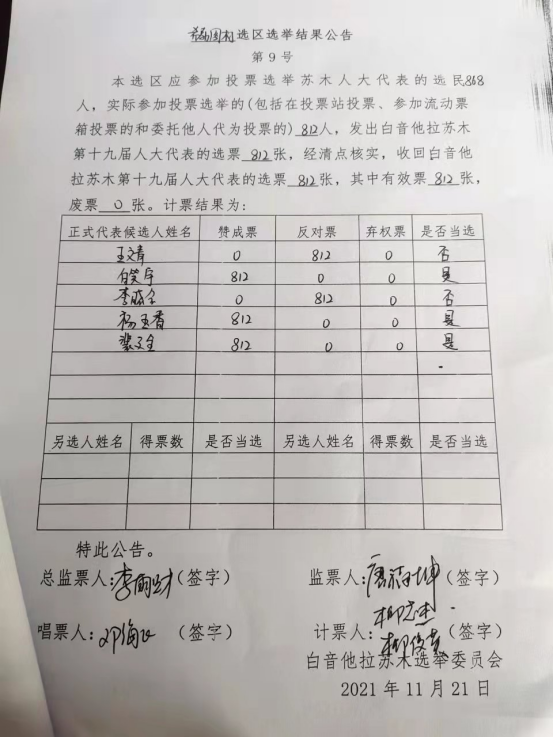 选区选举结果公告
第 9 号
本选区应参加投票选举苏木人大代表的选民868
人，实际参加投票选举的(包括在投票站投票、参加流动票
箱投票的和委托他人代为投票的)812人，发出白音他拉苏木
第十九届人大代表的选票 812 张，经清点核实，收回白音他
拉苏木第十九届人大代表的选票 812 张，其中有效票 812 张，
废票 0 张。计票结果为：
正式代表候选人姓名 赞成票 反对票 弃权票 是否当选
王文章 0 812 0 否
白笑宇 812 0 0 是
0 812 0 否
杨玉香 812 0 0 是
812 0 0 是
另选人姓名 得票数 是否当选 另选人姓名 得票数 是否当选
特此公告。
总监票人： (签字) 监票人： (签字)
唱票人：邓海 (签字) 计票人： (签字)
白音他拉苏木选举委员会
2021 年 11 月 21 日